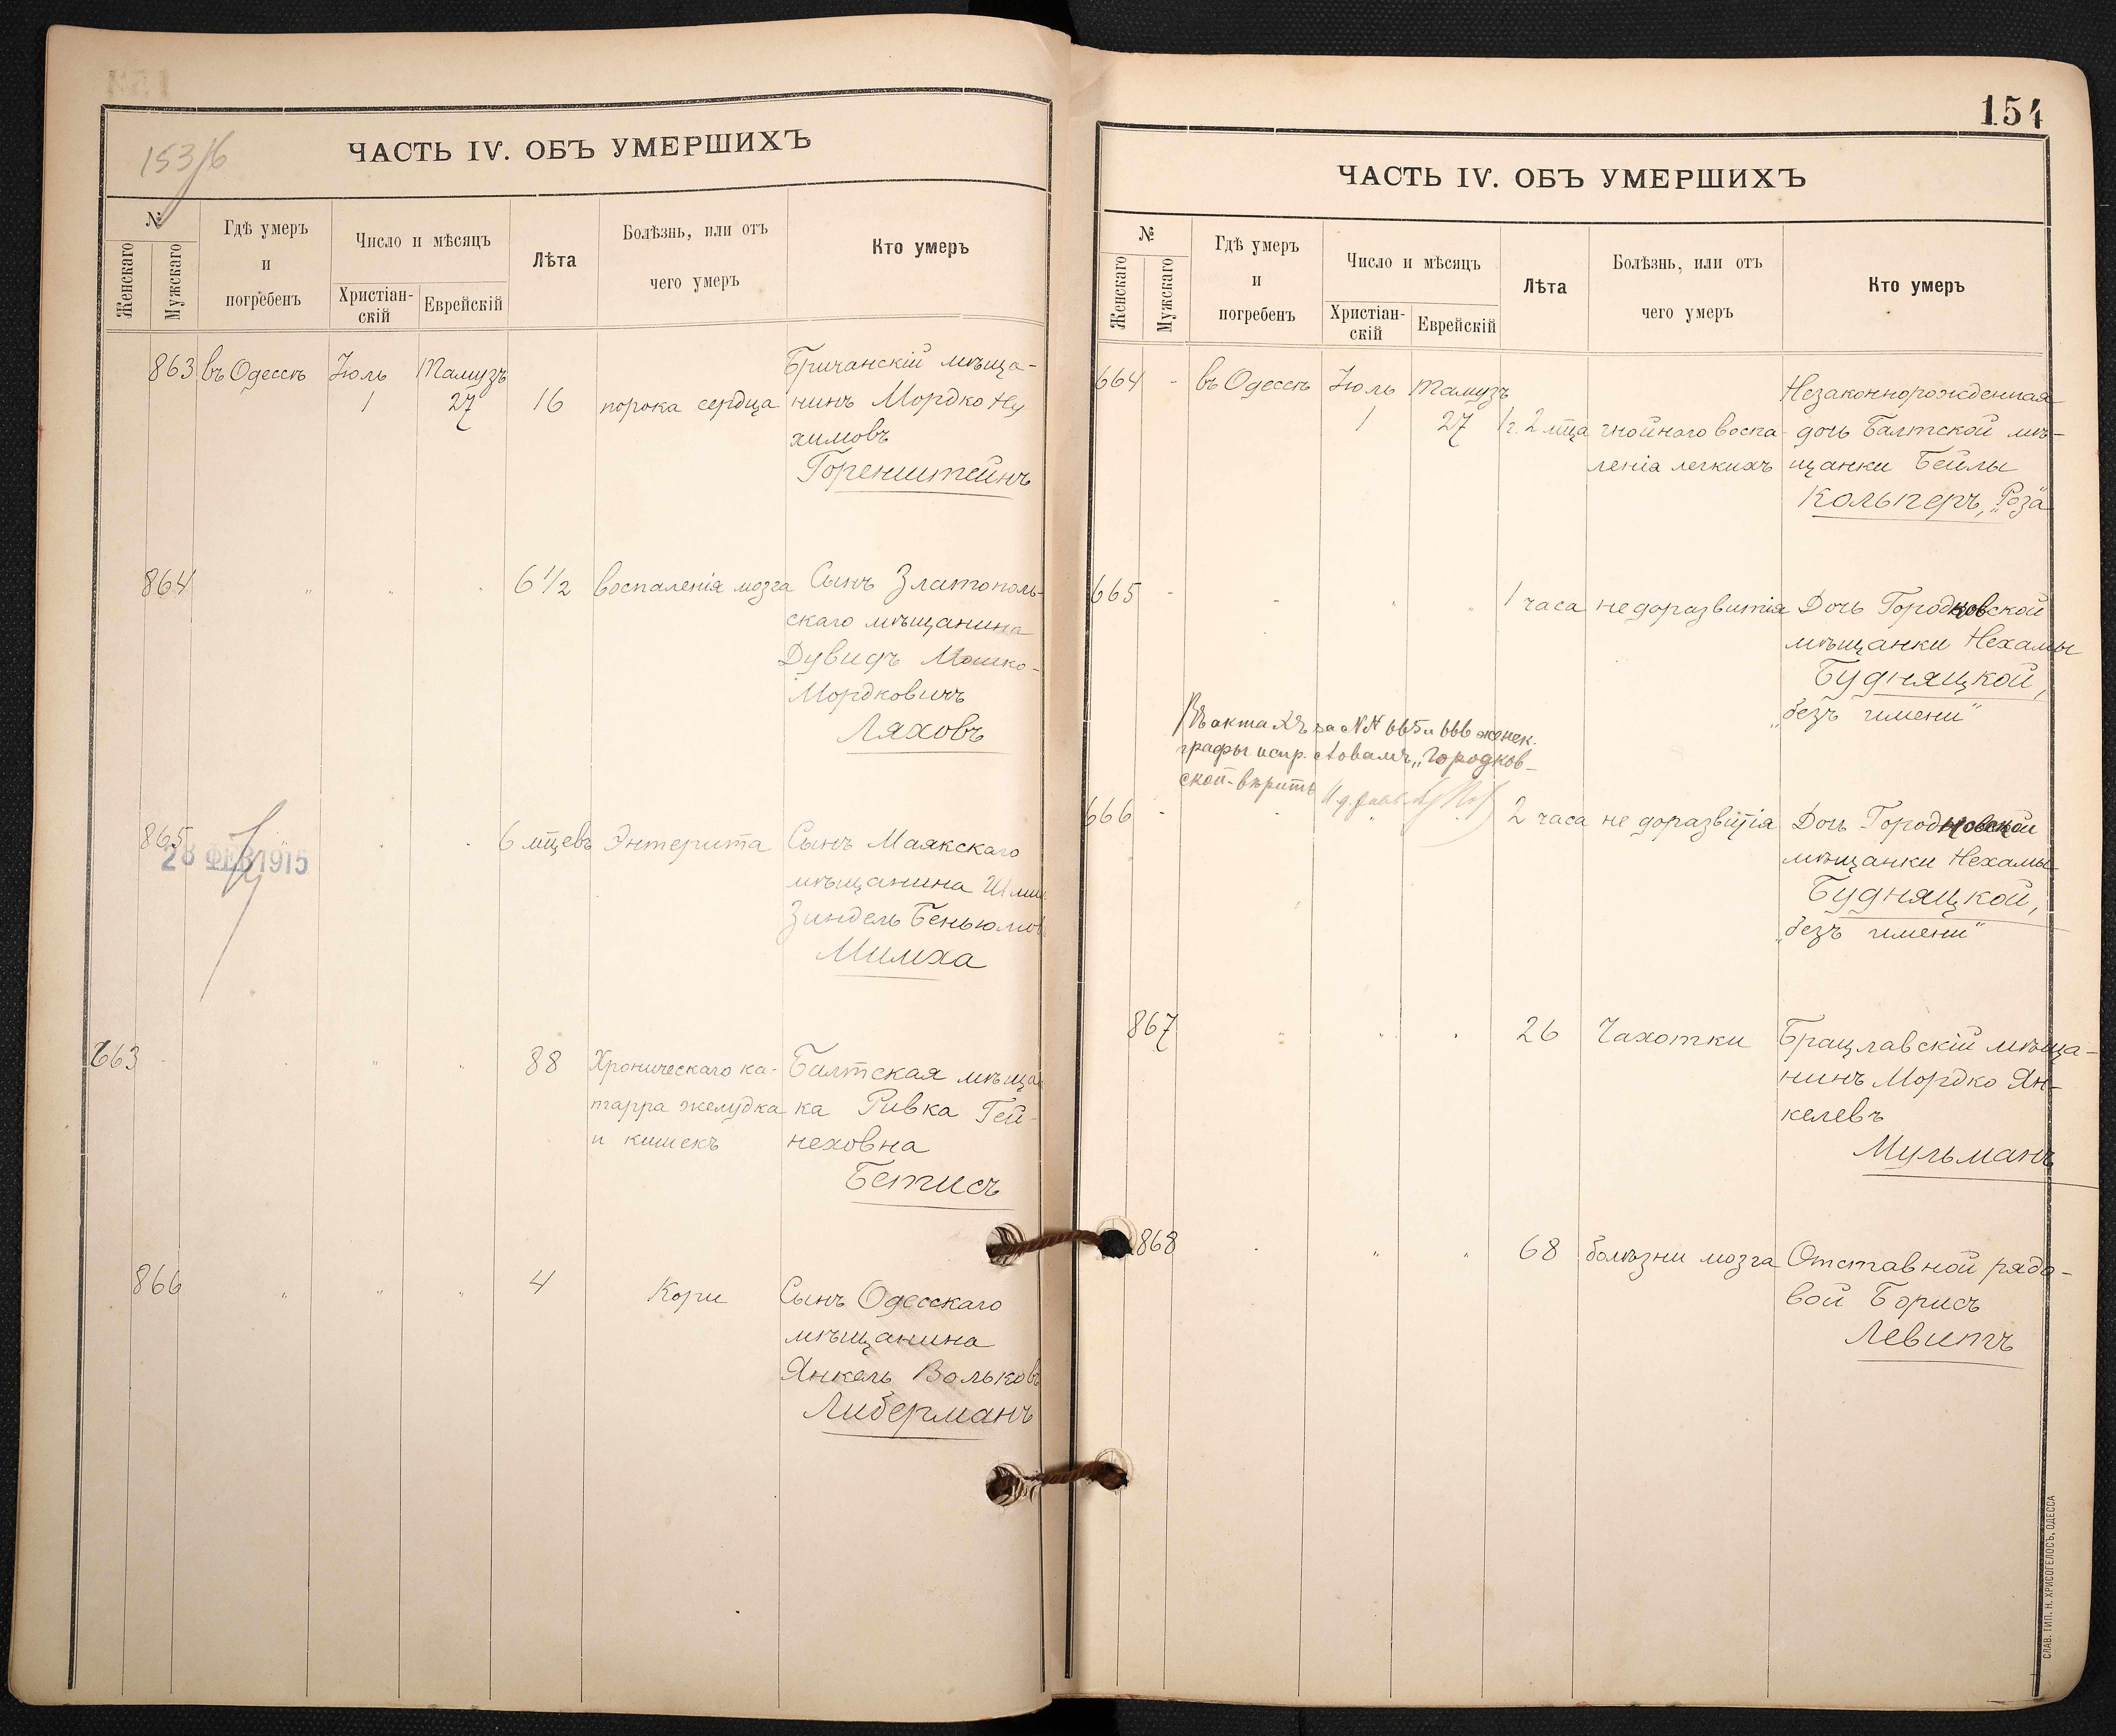 153/б
ЧАСТЬ IV. ОБЪ УМЕРШИХЪ
№
Женскаго
Мужскаго
Гдѣ умеръ
и
погребенъ
Число и мѣсяцъ
Христіан-
скій
Еврейскій
Лѣта
Болѣзнь, или отъ
чего умеръ
Кто умеръ
863 въ Одессѣ Іюль Тамузъ Бричанскій мѣща-
1 27 16 порока сердца нинъ Мордко Ну
химовъ
Горенштейнъ
864 " " " 6 1/2 воспаленія мозга Сынъ Златополь-
скаго мѣщанина
Дувидъ Мошко-
Мордковичъ
Ляховъ
865 6 мцевъ Энтерита Сынъ Маякскаго
28 ФЕВ 1915
мѣщанина
Зиндель Беньюмов
Милиха
663 " " 88 Хроническаго ка- Балтская мѣщан
тарра желудка ка Ривка Гей-
и кишекъ неховна
Бетисъ
866 " " " 4 Кори Сынъ Одесскаго
мѣщанина
Янкель Вольковъ
Либерманъ
154
ЧАСТЬ IV. ОБЪ УМЕРШИХЪ
№
Женскаго
Мужскаго
Гдѣ умеръ
и
погребенъ
Число и мѣсяцъ
Христіан-
скій
Еврейскій
Лѣта
Болѣзнь, или отъ
чего умеръ
Кто умеръ
664 - въ Одессѣ Іюль Тамузъ Незаконнорожденная
1 27 1 г. 2 мца гнойнаго воспа- дочь Балтской мѣ-
ленія легкихъ щанки Бейлы
Кольперъ, "Роза"
665 - - " " 1 часа недоразвитія Дочь Городковской
мѣщанки Нехамы
Будняцкой,
"безъ имени"
Въ актахъ за №№ 665 и 666 женск.
графы испр. словамъ "Городков-
ской" вѣрить
666 - 2 часа не доразвитія Дочь Городковской
мѣщанки Нехамы
Будняцкой,
"безъ имени"
867 " " " 26 Чахотки Брацлавскій мѣща-
нинъ Мордко Ян-
келевъ
Мульманъ
868 " " 68 болѣзни мозга Отставной рядо-
вой Борисъ
Левитъ
СЛАВ. ТИП. Н. ХРИСОГЕЛОСЪ, ОДЕССА